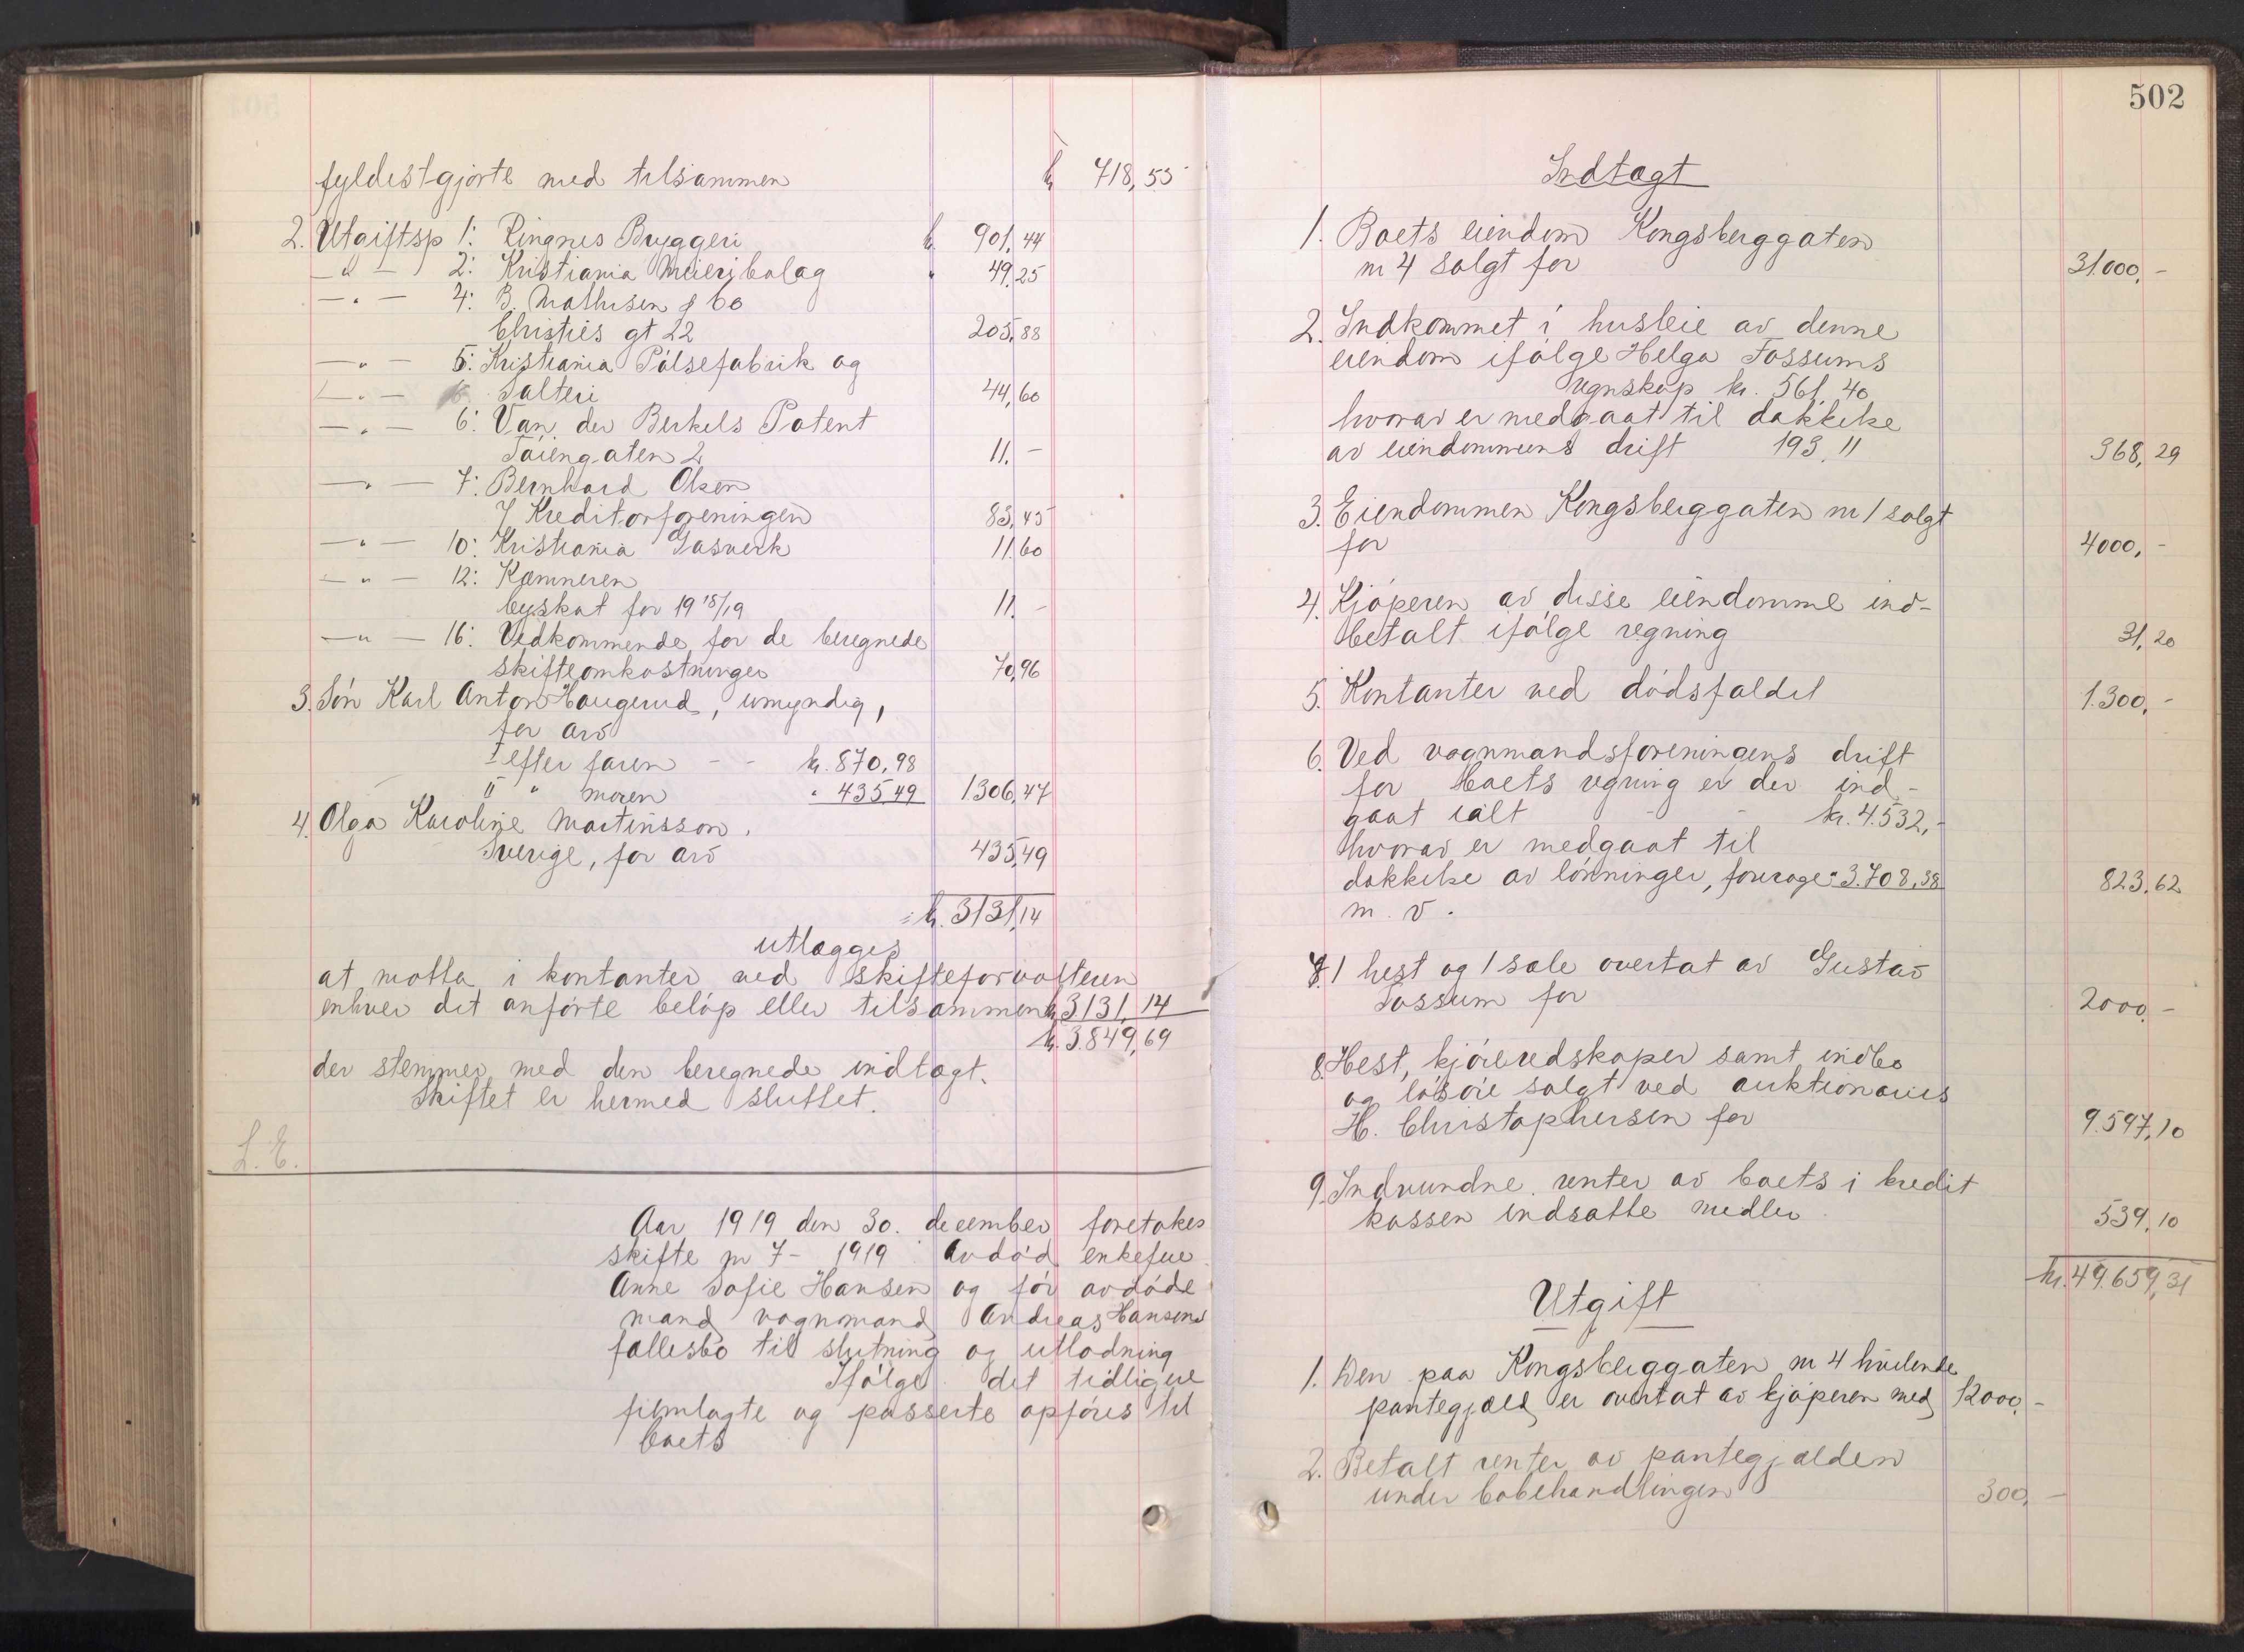 fyldestgjorte med tilsammen kr 718,55
2. Utgiftsp 1: Ringnes Bryggeri kr. 901,44
— " — 2: Kristiania Meieribolag " 49,25
— " — 4: B. Mathisen & Co
Christies gt 22 205,88
— " — 5: Kristiania Pölsefabrik og
— " — Salteri 44,60
— " — 6: Van der Berkels Patent
Töiengaten 2 11.-
— " — 7: Bernhard Olsen
% Kreditorforeningen 83,45
— " — 10: Kristiania Gasverk 11.60
— " — 12: Kæmneren
byskat for 1918/19 11.-
— " — 16: Vedkommende for de beregnede
skifteomkostninger 70,96
3. Sön Karl Anton Haugerud, umyndig,
for arv
efter faren - - kr. 870,98
" " moren " 435,49 1306,47
4. Olga Karoline Martinsson.
Sverige, for arv 435,49
kr. 3131,14
utlægges
at motta i kontanter ved skifteforvalteren
enhver det anförte belöp eller tilsammen kr 3131,14
kr. 3.849,69
der stemmer med den beregnede indtægt.
Skiftet er hermed sluttet.
L. E.
Aar 1919 den 30. december foretokes
skifte nr 7 - 1919 Avdöd enkefrue
Anne Sofie Hansen og för avdöde
mand vognmand Andreas Hansens
fællesbo til slutning og utlodning
Ifölge det tidligere
fremlagte og passerte opföres til
boets
502
Indtægt
1. Boets eiendom Kongsberggaten
nr 4 solgt for 31.000,-
2. Indkommet i husleie av denne
eiendom ifölge Helga Fossums
regnskap kr. 561,40
hvorav er medgaat til dækkelse
av eiendommens drift 193,11 368,29
3. Eiendommen Kongsberggaten nr 1 solgt
for 4000,-
4. Kjöperen av disse eiendomme ind-
betalt ifölge regning 31,20
5. Kontanter ved dödsfaldet 1.300,-
6. Ved vognmandsforeningens drift
for boets regning er der ind-
gaat ialt - - kr. 4.532,-
hvorav er medgaat til
dækkelse av lönninger, fourage " 3.708,38 823,62
m. v.
7. 1 hest og 1 sæle overtat av Gustav
Fossum for 2000.-
8. Hest, kjöreredskaper samt indbo
og lösöre solgt ved auktionarius
H. Christophersen for 9.597,10
9. Indvundne renter av boets i kredit
kassen indsatte midler 539,10
kr. 49.659,31
Utgift
1. Den paa Kongsberggaten nr 4 hvilende
pantegjæld er overtat av kjöperen med 12000,-
2. Betalt renter av pantegjælden
under bobehandlingen 300,-